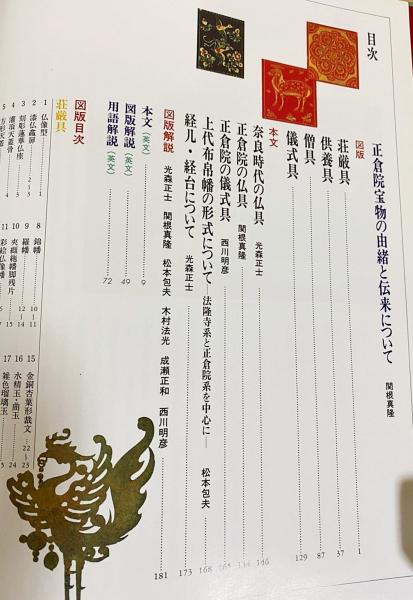 目次
正倉院宝物の由緒と伝来について 関根真隆
図版
荘厳具 1
供養具 37
僧具 87
儀式具 129
本文
奈良時代の仏具 光森正士 146
正倉院の仏具 関根真隆
正倉院の儀式具 西川明彦 165
上代布帛幡の形式について―法隆寺系と正倉院系を中心に― 松本包夫 168
経几・経台について 光森正士 173
図版解説 光森正士 関根真隆 松本包夫 木村法光 成瀬正和 西川明彦 181
本文(英文) 9
図版解説(英文) 49
用語解説(英文) 72
図版目次
荘厳具
1 仏像型
2 漆仏龕扉 2~3
3 刻彫蓮華仏座
4 灌頂天蓋骨
5 方形天蓋
8 錦幡
9 羅幡 10~11
10 夾纈絁幡脚残片
11 彩絵仏像幡
15 金銅杏葉形裁文 22~23
16 水精玉・曲玉 24
17 雑色瑠璃玉